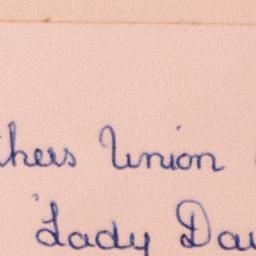 thers Union
Lady Dav